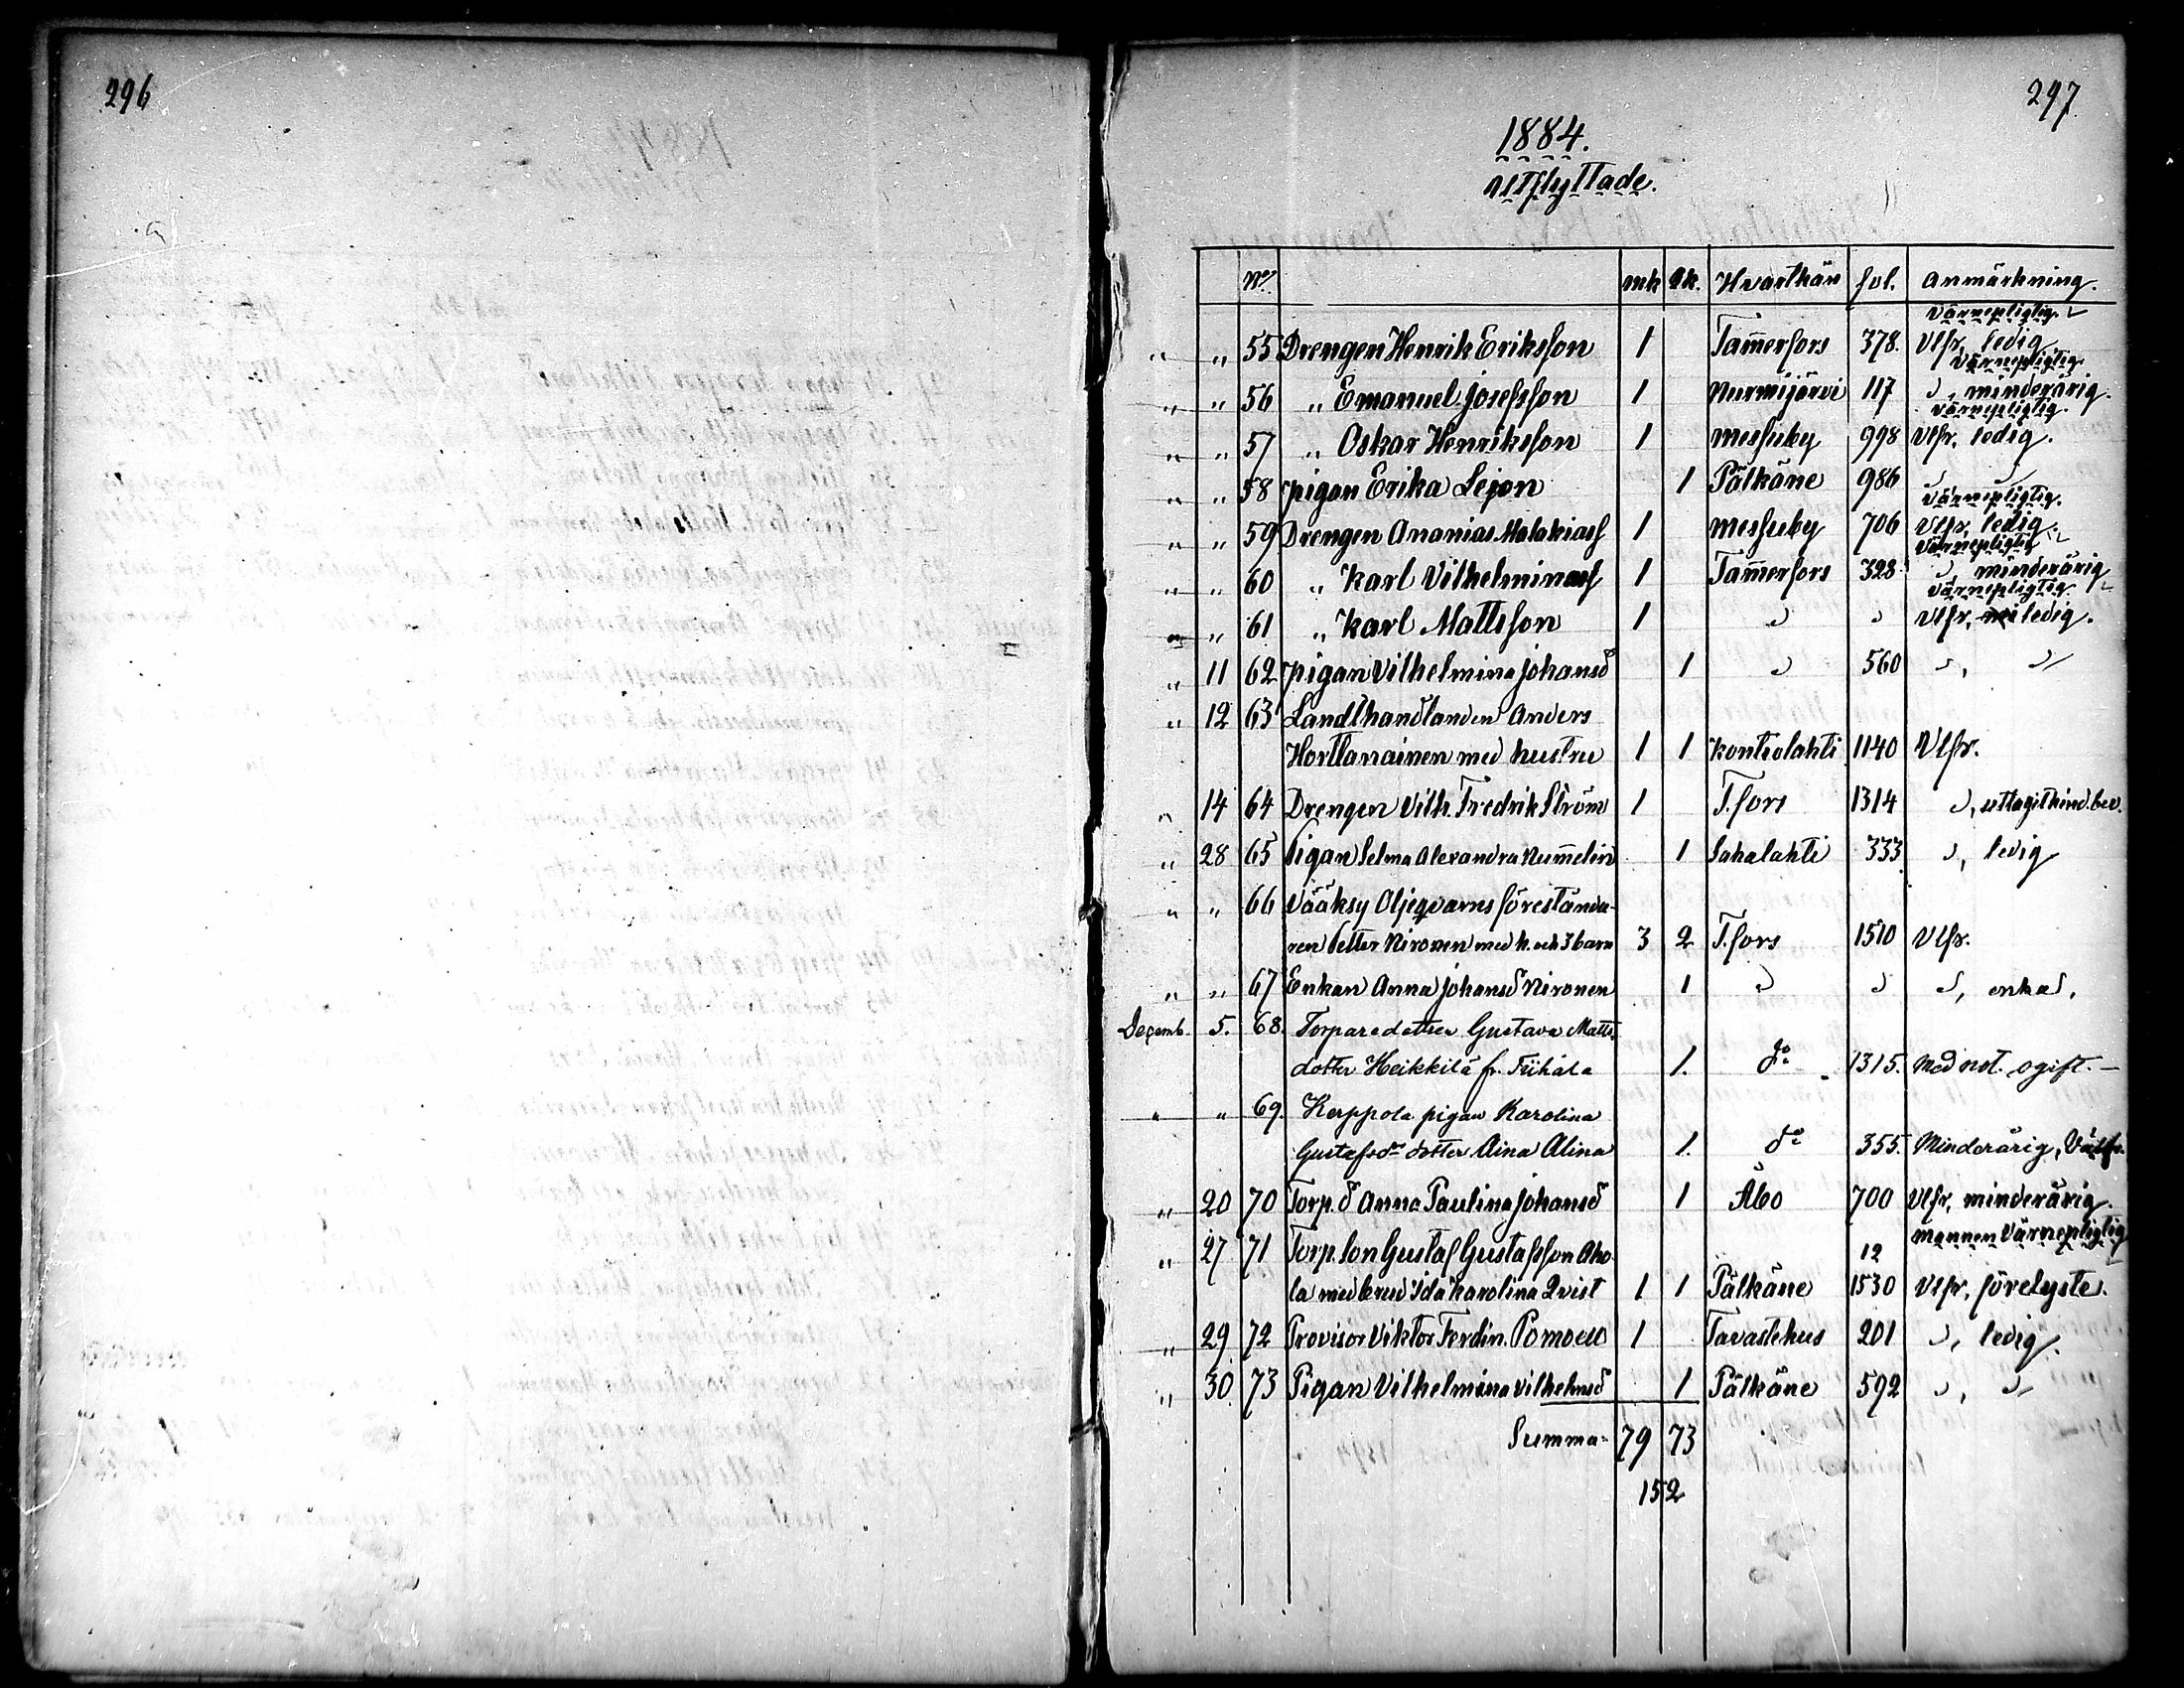 296
297
1884.
Utflyttade.
No mk qk. Hvarthän fol. Anmärkning.
värnepligtig.
" " 55 Drengen Henrik Eriksson 1 Tammerfors 378. Vlfr, ledig
värnepligtig.
" " 56 " Emanuel Josefsson 1 Nurmijärvi 117 ", minderårig.
värnepligtig.
" " 57 " Oskar Henriksson 1 Messuby 998 Vlfr, ledig.
" " 58 pigan Erika Lejon 1 Pälkäne 986 " "
värnepligtig.
" " 59 Drengen Ananias Malakiass 1 Messuby 706 Vlfr, ledig.
värnepligtig
" " 60 " Karl Vilhelminass 1 Tammerfors 328 " minderårig
värnepligtig.
" " 61 " Karl Mattsson 1 " " Vlfr, ledig.
" 11 62 pigan Vilhelmina Johansd 1 " 560 ", "
" 12 63 Landthandlanden Anders
Horttanainen med hustru 1 1 Kontiolahti 1140 Vlfr.
" 14 64 Drengen Vilh. Fredrik Ström 1 T.fors 1314 ", uttagit hind.bev.
" 28 65 Pigan Selma Alexandra Nummelin 1 Sahalahti 333 ", ledig
" " 66 Vääksy Oljeqvarns förestånda-
ren Petter Nironen med h. och 3 barn 3 2 T.fors 1510 Vlfr.
" " 67 Enkan Anna Johansd Nironen 1 " " ", enka.
Decemb. 5. 68. Torparedottren Gustava Matts-
dotter Heikkilä fr. Tiihala 1. do 1315. Med not. ogift. —
" " 69. Kerppola pigan Karolina
Gustafsdrs dotter Aina Alina 1. do 355. Minderårig, Välfr.
" 20 70 Torp. d Anna Paulina Johansd 1 Åbo 700 Vlfr, minderårig.
mannen värnepligtig
" 27 71 Torp. son Gustaf Gustafsson Aho- 12
la med brud Ida Karolina Qvist 1 1 Pälkäne 1530 Vlfr, förelyste.
" 29 72 Provisor Viktor Ferdin. Pomoell 1 Tavastehus 201 ", ledig.
" 30 73 Pigan Vilhelmina Vilhelmsd 1 Pälkäne 592 ", "
Summa 79 73
152